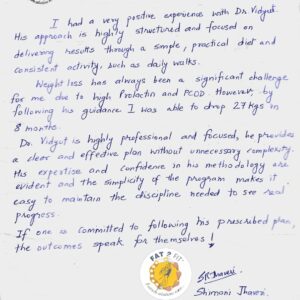 I had a very positive experience with Dr. Vidyut.
His approach is highly structured and focused on
delivering results through a simple, practical diet and
consistent activity, such as daily walks.
Weight loss has always been a significant challenge
for me due to high Prolactin and PCOD. However, by
following his guidance I was able to drop 27 Kgs in
8 months.
Dr. Vidyut is highly professional and focused, he provides
a clear and effective plan without unnecessary complexity.
His expertise and confidence in his methodology are
evident and the simplicity of the program makes it
easy to maintain the discipline needed to see real
progress.
If one is committed to following his prescribed plan,
the outcomes speak for themselves!
FAT 2 FIT
Shimoni Jhaveri.